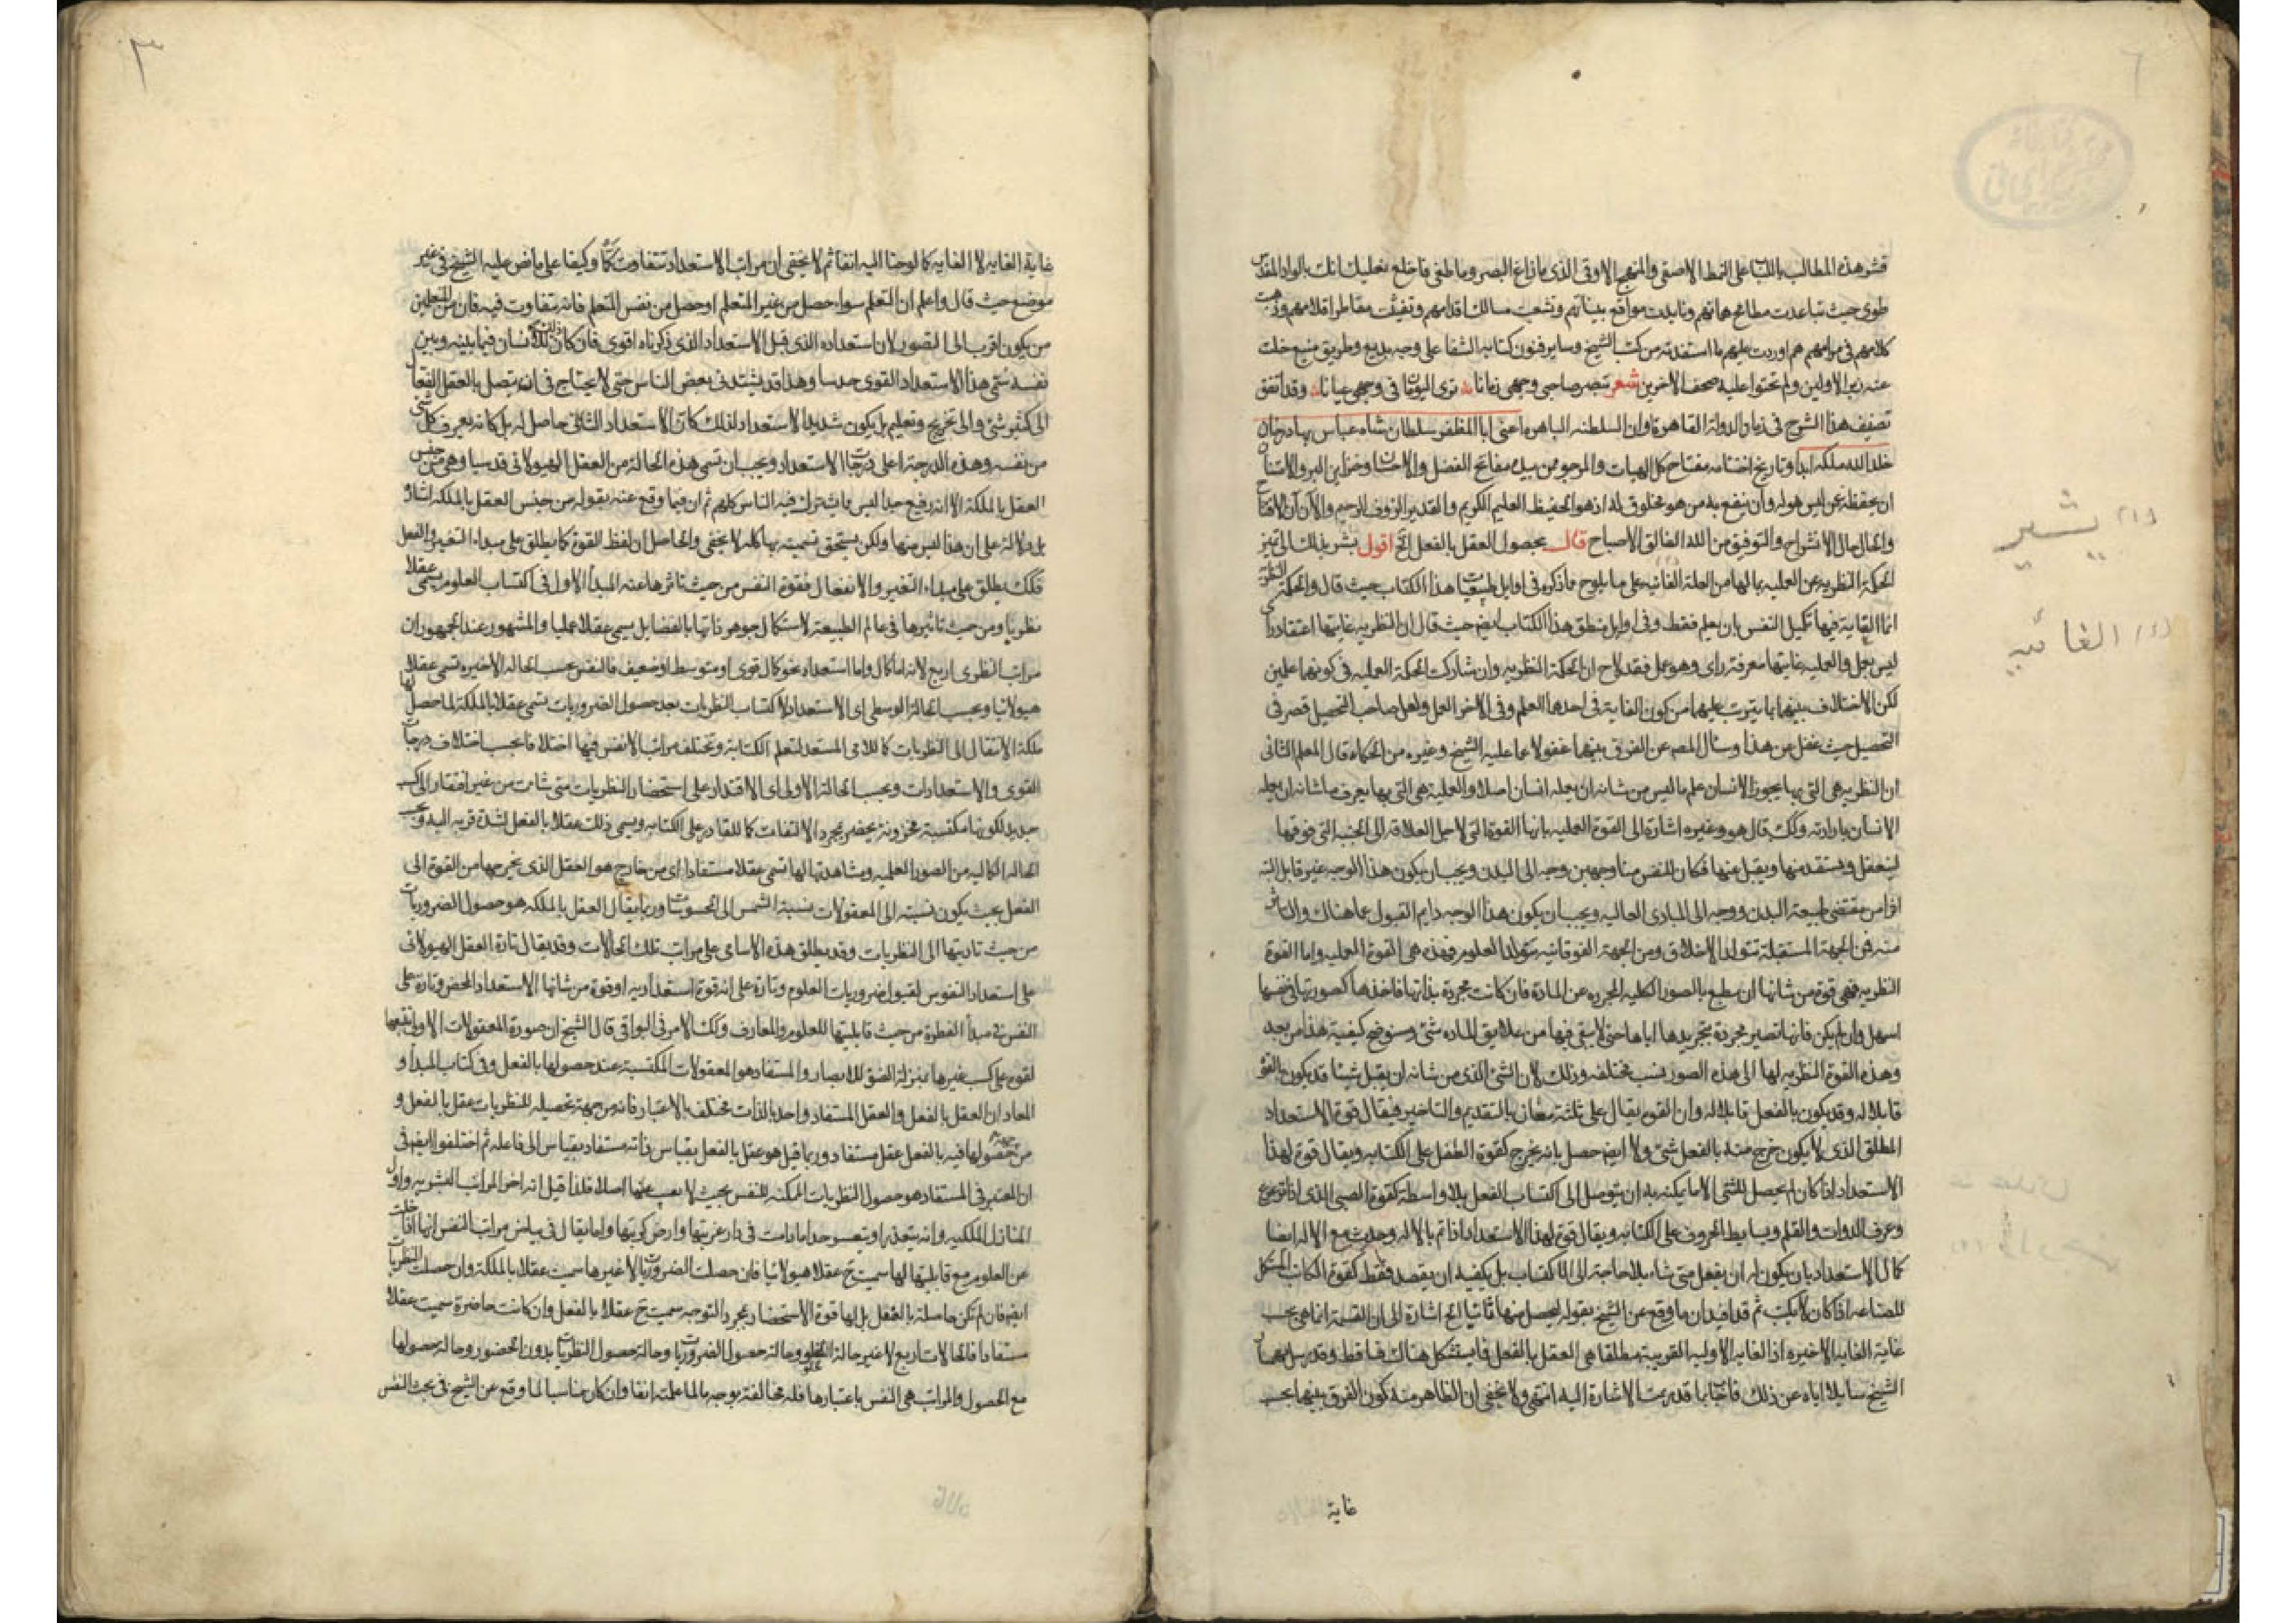 قشر هذه المطالب باللباب على النمط الاصفى والمنهج الاوفى الذى مازاغ البصر وماطغى فاخلع نعليك انك بالواد المقدس
طوى حيث تباعدت مطامح همانهم وتابدت مواقع بيناتهم وتشعبت مسالك اقدامهم وتفيف مقاطر اقلامهم
كلامهم فى مرامهم هم اوردت عليهم ما استفدته من كتب الشيخ وساير فنون كتابه الشفا على وجه بديع وطريق منيع خلت
عنه زبر الاولين ولم تحتوا عليه صحف الاخرين شعر تبصر صاحبى وجهى زمانا ترى اليوقات فى وجهى عيانا وقد اتفق
تصنيف هذا الشرح فى زمان الدولة القاهرة واوان السلطنه الباهره اعنى ابا المظفر سلطان شاه عباس بهادرخان
خلد الله ملكه ابدا وتاريخ اختتامه مفتاح كل الهبات والمرجو ممن بيده مفاتح الفضل والاحسان وخزاين البر والامتنان
ان يحفظه عن ليس هو له وان ينفع به من هو مخلوق له اذ هو الحفيظ العليم الكريم والقدير الرؤف الرحيم والان آن الافتتاح
والحال حال الانشراح والتوفيق من الله الفالق الاصباح قال بحصول العقل بالفعل الخ اقول يشر بذلك الى تميز
الحكمة النظريه عن العمليه بمالها من العلة الغائيه على ما يلوح مما ذكره فى اوايل طبيعيات هذا الكتاب حيث قال والحكمة النظرية
انما الغاية فيها تكميل النفس بان يعلم فقط وفى اوايل منطق هذا الكتاب ايضم حيث قال ان النظريه غايتها اعتقاد راى
ليس بعمل والعمليه غايتها معرفة راى وهو عمل فقد لاح ان الحكمة النظريه وان شاركت الحكمة العمليه فى كونهما علمين
لكن الاختلاف بينهما بما يترتب عليهما من كون الغاية فى احدهما العلم وفى الاخر العمل ولعل صاحب التحصيل قصر فى
التحصيل حيث غفل عن هذا وسال المصم عن الفرق بينهما غفولا عما عليه الشيخ وغيره من الحكماء قال المعلم الثانى
ان النظريه هى التى بها يحوز الانسان علم ما ليس من شانه ان يعمله انسان اصلا والعملية هى التى بها يعرف ما شانه ان يعمله
الانسان بارادته وكك قال هو وغيره اشارة الى القوة العمليه بانها القوة التى لاجل العلاقه الى الجنبه التى فوقها
لينفعل ويستفيد منها ويقبل عنها فكان للنفس منا وجهين وجه الى البدن ويجب ان يكون هذا الوجه غير قابل البته
اثرا من مقتضى طبيعة البدن ووجه الى المبادى العاليه ويجب ان يكون هذا الوجه دايم القبول عما هناك والتاثر
منه فمن الجهة المستفلة تتولد الاخلاق ومن الجهة الفوقانيه يتولد العلوم فهذه هى القوة العمليه واما القوة
النظريه فهى قوة من شانها ان ينطبع بالصور الكليه المجرده عن المادة فان كانت مجردة بذاتها فاخذها كصورتها فى نفسها
اسهل وان لم يكن فانها تصير مجردة بتجريدها اياها حتى لا يبقى فيها من علايق الماده شئ وسنوضح كيفية هذا من بعد
وهذه القوة النظريه لها الى هذه الصور نسب مختلفه وذلك لان الشئ الذى من شانه ان يقبل شيئا قد يكون بالقوة
قابلا له وقد يكون بالفعل قابلا له وان القوه يقال على ثلثة معان بالتقديم والتاخير فيقال قوة الاستعداد
المطلق الذى لا يكون خرج منه بالفعل شئ ولا ايضم حصل ما به يخرج كقوة الطفل على الكتابه ويقال قوة لهذا
الاستعداد اذا كان لم يحصل للشئ الا ما يمكنه به ان يتوصل الى اكتساب الفعل بلا واسطة كقوة الصبى الذى اذا ترعرع
وعرف الدوات والقلم وبسايط الحروف على الكتابه ويقال قوة لهذا الاستعداد اذا تم بالاله وحدث مع الاله ايضا
كمال الاستعداد بان يكون له ان يفعل متى شاء بلا حاجة الى الاكتساب بل يكفيه ان يقصد فقط كقوة الكاتب المستكمل
للصناعه اذا كان لا يكتب ثم قد افيد ان ما وقع عن الشيخ بقوله ليحصل منها ثانيا الخ اشارة الى ان القسمة انما هى بحسب
غاية الغايه الاخيره اذ الغايه الاوليه القريبة مطلقا هى العقل بالفعل فايستشكل هناك
الشيخ سايلا اياه عن ذلك فاجاب بما قد مرت الاشارة اليه انتهى ولا يخفى ان الظاهر منه كون الفرق بينهما بحسب
غاية
يشير
الغائيه
٣
غاية الغايه لا الغايه كما لوحنا اليه انفا ثم لا يخفى ان مراتب الاستعداد تتفاوت كما وكيفا على ما نص عليه الشيخ فى غير
موضع حيث قال واعلم ان التعلم سواء حصل من غير المتعلم او حصل من نفس المتعلم فانه متفاوت فيه فان من المتعلمين
من يكون اقرب الى التصور لان استعداده الذى قبل الاستعداد الذى ذكرناه اقوى فان كان ذلك للانسان فيما بينه وبين
نفسه سمى هذا الاستعداد القوى حدسا وهذا قد يشتد فى بعض الناس حتى لا يحتاج فى ان يتصل بالعقل الفعال
الى كثير شئ والى تخريج وتعليم بل يكون شديد الاستعداد لذلك كان الاستعداد الثانى حاصل له بل كانه يعرف كل شئ
من نفسه وهذه الدرجة اعلى درجات الاستعداد ويجب ان تسمى هذه الحالة من العقل الهيولانى قدسيا وهى من جنس
العقل بالملكة الا انه رفيع جدا ليس مما يشترك فيه الناس كلهم ثم ان فيما وقع عنه بقوله من جنس العقل بالملكة اشارة
بل دلالة على ان هذا ليس منها ولكن يستحق تسميته بها كما لا يخفى والحاصل ان لفظ القوة كما يطلق على مبداء التغير والفعل
فكك يطلق على مبداء التغير والانفعال فقوة النفس من حيث تاثرها عنه المبدأ الاول فى اكتساب العلوم يسمى عقلا
نظريا ومن حيث تاثيرها فى عالم الطبيعة لاستكمال جوهر ذاتها بالفضايل يسمى عقلا عمليا والمشهور عند الجمهور ان
مراتب النظرى اربع لانه اما كمال واما استعداد نحو كمال قوى او متوسط او ضعيف فالنفس بحسب الحالة الاخيره تسمى عقلا
هيولانيا وبحسب الحالة الوسطى اى الاستعداد لاكتساب النظريات بعد حصول الضروريات تسمى عقلا بالملكة لما حصل لها
ملكة الانتقال الى النظريات كالامى المستعد لتعلم الكتابة وتختلف مراتب الانفس فيها اختلافا بحسب اختلاف درجات
القوى والاستعدادات وبحسب الحالة الاولى اى الاقتدار على استحضار النظريات متى شاءت من غير افتقار الى كسب
جديد لكونها مكتسبة مخزونة يحضر بمجرد الالتفات كما للقادر على الكتابه ويسمى ذلك عقلا بالفعل لشدة قربه اليه وبحسب
الحاله الكماليه من الصور العلميه ومشاهدتها لها تسمى عقلا مستفادا اى من خارج هو العقل الذى يخرجها من القوة الى
الفعل بحيث يكون نسبته الى المعقولات نسبة الشمس الى المحسوسات وربما يقال العقل بالملكه هو حصول الضروريات
من حيث تاديتها الى النظريات وقد يطلق هذه الاسامى على مراتب تلك الحالات وقد يقال تارة العقل الهيولانى
على استعداد النفوس لقبول ضروريات العلوم وتارة على انه قوة استعداديه او قوة من شانها الاستعداد المحض وتارة على
النفس فى مبدأ الفطرة من حيث قابليتها للعلوم والمعارف وكك الامر فى البواقى قال الشيخ ان صورة المعقولات الاولى
لقوه على كسب غيرها بمنزلة الضوء للابصار والمستفاد هو المعقولات المكتسبة عند حصولها بالفعل وفى كتاب المبدأ و
المعاد ان العقل بالفعل والعقل المستفاد واحد بالذات مختلف بالاعتبار فانه من جهة تحصيله للنظريات عقل بالفعل و
من جهة حصولها فيه بالفعل عقل مستفاد وربما قيل هو عقل بالفعل بقياس ذاته مستفاد بقياس الى فاعله ثم اختلفوا ايضم فى
ان المعتبر فى المستفاد هو حصول النظريات الممكنه للنفس بحيث لا يغيب عنها اصلا فلذا قيل انه اخر المراتب البشريه واول
المنازل الملكيه وانه يتعذر او يتعسر جدا مادامت فى دار غربتها وارض كربتها واما يقال فى مراتب النفس انها اذا خلت
عن العلوم مع قابليتها لها سميت ح عقلا هيولانيا فان حصلت الضروريات لا غيرها سميت عقلا بالملكة وان حصلت النظريات
ايضم فان لم تكن حاصلة بالفعل بل لها قوة الاستحضار بمجرد التوجه سميت ح عقلا بالفعل وان كانت حاضرة سميت عقلا
مستفادا فالحالات اربع لا غير حالة الخلو وحالة حصول الضروريات وحالة حصول النظريات بدون الحضور وحالة حصولها
مع الحصول والمراتب هى النفس باعتبارها فله مخالفة بوجه ما لما علمته انفا وان كان مناسبا لما وقع عن الشيخ فى بحث النفس